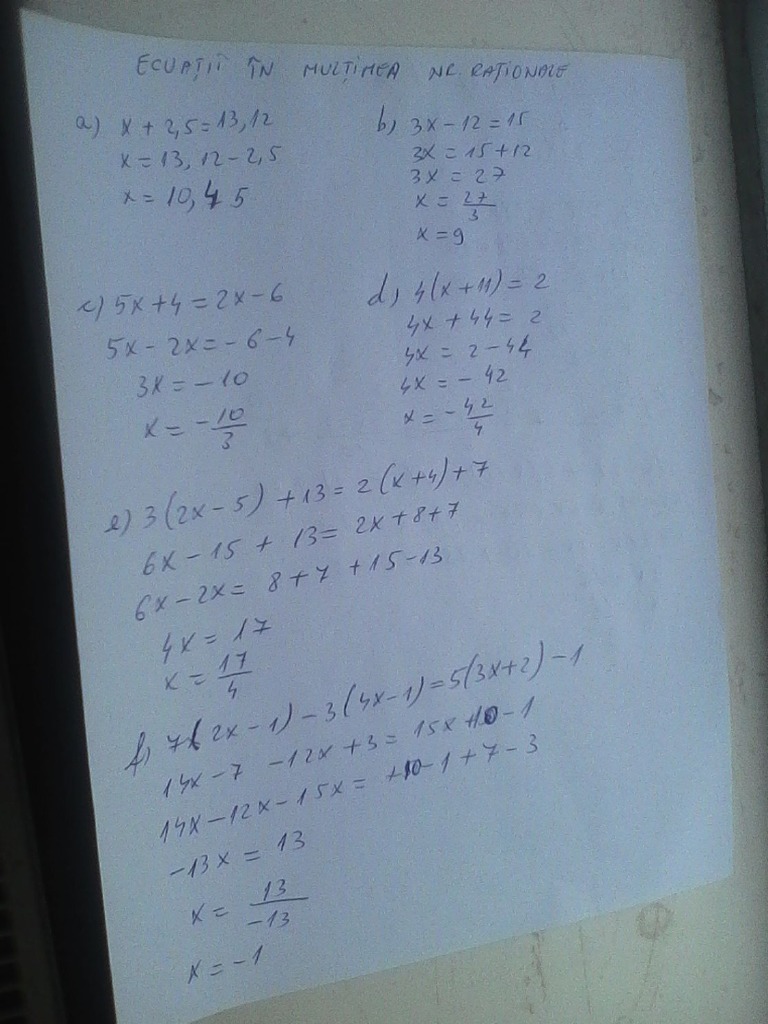 ECUAȚII ÎN MULȚIMEA NR. RAȚIONALE
a) x + 2,5 = 13,12
x = 13,12 - 2,5
x = 10,45
b) 3x - 12 = 15
3x = 15 + 12
3x = 27
x = 27/3
x = 9
c) 5x + 4 = 2x - 6
5x - 2x = - 6 - 4
3x = - 10
x = - 10/3
d) 4(x + 11) = 2
4x + 44 = 2
4x = 2 - 44
4x = - 42
x = - 42/4
e) 3(2x - 5) + 13 = 2(x + 4) + 7
6x - 15 + 13 = 2x + 8 + 7
6x - 2x = 8 + 7 + 15 - 13
4x = 17
x = 17/4
f) 7(2x - 1) - 3(4x - 1) = 5(3x + 2) - 1
14x - 7 - 12x + 3 = 15x + 10 - 1
14x - 12x - 15x = + 10 - 1 + 7 - 3
-13x = 13
x = 13/-13
x = - 1